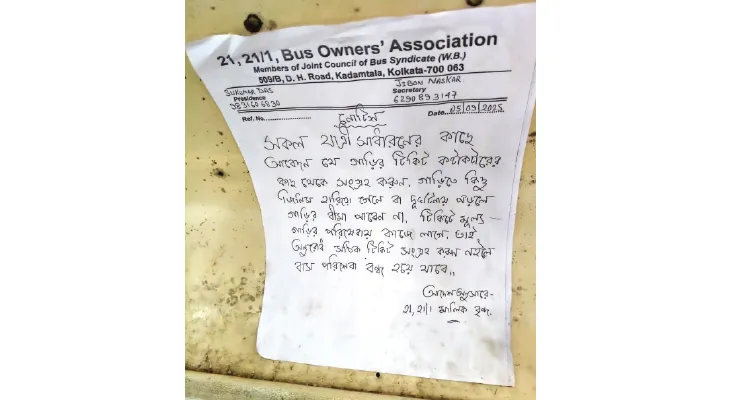 21, 21/1, Bus Owners' Association
Members of Joint Council of Bus Syndicate (W.B.)
509/B, D. H. Road, Kadamtala, Kolkata-700 063
SUKUMAR DAS JIBON NASKAR
Presidence Secretary
9831606830 6290893147
Ref. No. Date 05/09/2025
নোটিস
সকল যাত্রী সাধারনের কাছে
আবেদন যে গাড়ির টিকিট কন্ডাকটারের
কাছ থেকে সংগ্রহ করুন, গাড়িতে কিছু
জিনিস হারিয়ে গেলে বা দুর্ঘটনায় পড়লে
গাড়ির বীমা পাবেন না, টিকিট মূল্য
গাড়ির পরিষেবায় কাজে লাগে, তাই
অনুরোধ সঠিক টিকিট সংগ্রহ করুন নইলে
বাস পরিসেবা বন্ধ হয়ে যাবে,,
আদেশানুসারে-
২১, ২১/১ মালিক বৃন্দ.